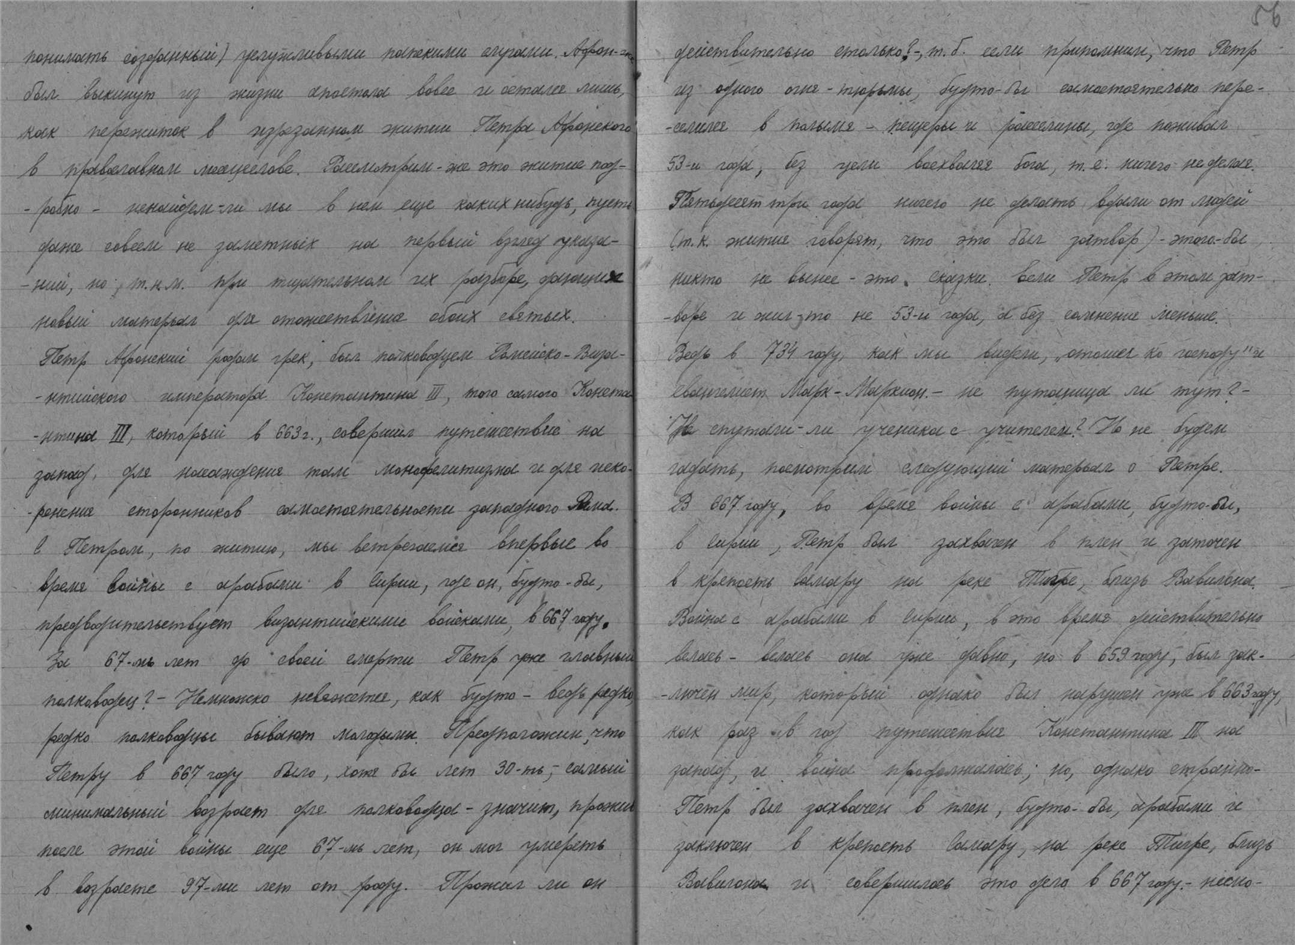 понимать созданный) услужливыми папскими отцами. Афон-же
был выкинут из жизни апостола вовсе и остался лишь,
как пережиток в изрезанном житии Петра Афонского
в православном месяцеслове. Рассмотрим-же это житие под-
-робно - ненайдем-ли мы в нем еще каких нибудь, пусть
даже совсем не заметных на первый взгляд указа-
-ний, но, т.н.м. при тщательном их разборе, дающих
новый матерьял для отожествления обоих святых.
Петр Афонский родом грек, был полководцем Ромейско-Виза-
-нтийского императора Константина III, того самого Конста-
-нтина III, который в 663 г., совершил путешествие на
запад, для насаждения там монофелитизма и для иско-
-ренения сторонников самостоятельности западного Рима.
С Петром, по житию, мы встречаемся впервые во
время войны с арабами в Сирии, где он, будто-бы,
предводительствует византийскими войсками, в 667 году.
За 67-мь лет до своей смерти Петр уже главный
полководец? - Немножко невяжется, как будто - ведь редко,
редко полководцы бывают молодыми. Предположим, что
Петру в 667 году было, хотя бы лет 30-ть, - самый
минимальный возраст для полководца - значит, прожив
после этой войны еще 67-мь лет, он мог умереть
в возрасте 97-ми лет от роду. Прожил ли он
56
действительно столько? -, т.б. если припомним, что Петр
из одного огня - тюрьмы, будто-бы самостоятельно пере-
-селился в полымя - пещеры и расселины, где поживал
53-и года, без цели восхваляя бога, т.е. ничего не делая.
Пятьдесят три года ничего не делать вдали от людей
(т.к. жития говорят, что это был затвор) - этого-бы
никто не вынес - это сказки. Если Петр в этом зат-
-воре и жил, то не 53-и года, а без сомнения меньше.
Ведь в 734 году, как мы видели, "отошел ко господу" и
евангелист Марк-Маркион. - не путаница ли тут? -
Не спутали-ли ученика с учителем? Но не будем
гадать, посмотрим следующий матерьял о Петре.
В 667 году, во время войны с арабами, будто-бы,
в Сирии, Петр был захвачен в плен и заточен
в крепость Самару на реке Тигре, близь Вавилона.
Война с арабами в Сирии, в это время действительно
велась - велась она уже давно, но в 659 году, был зак-
-лючен мир, который однако был нарушен уже в 663 году,
как раз в год путешествия Константина III на
запад, и война продолжалась; но, однако странно -
Петр был захвачен в плен, будто-бы, арабами и
заключен в крепость Самару, на реке Тигре, близь
Вавилона и совершилось это дело в 667 году. - неспо-